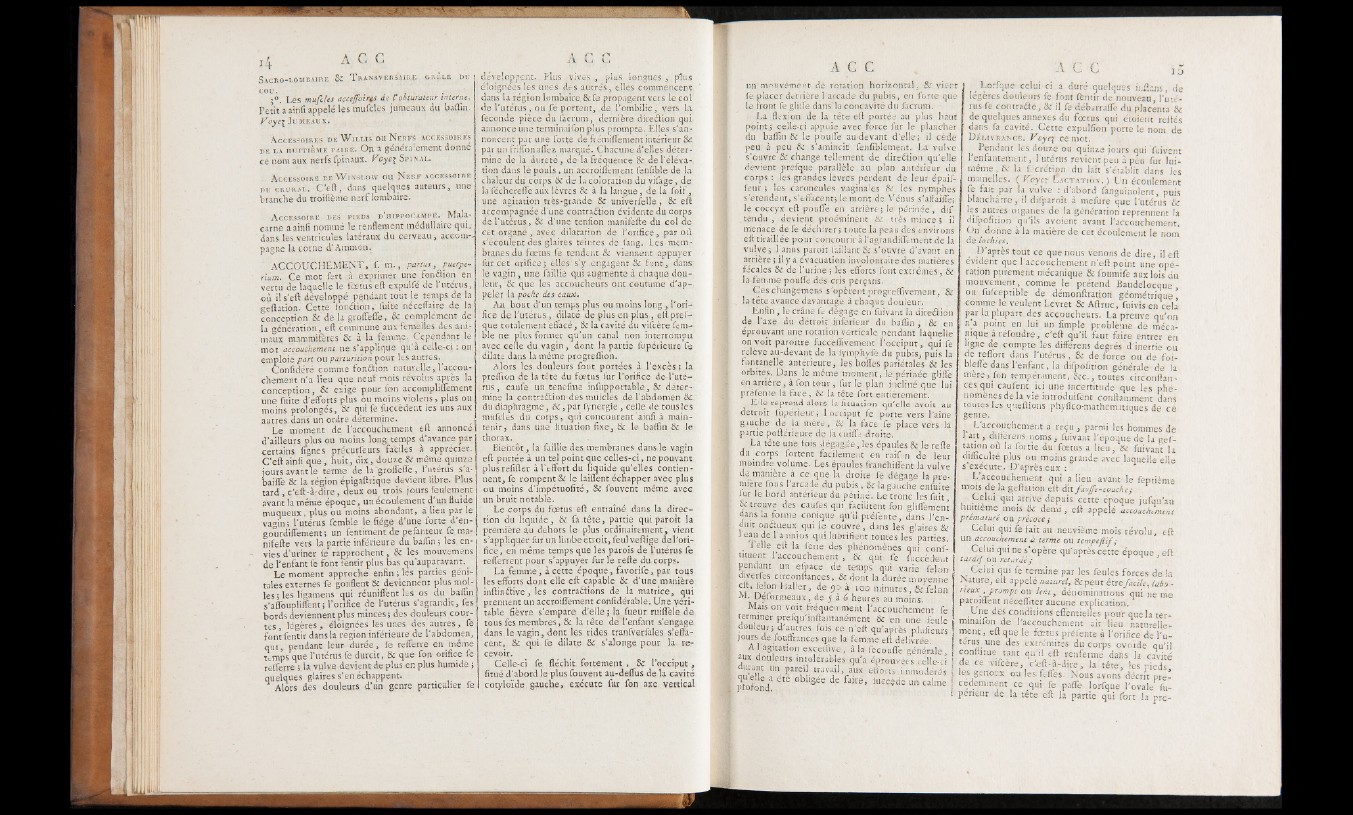 14 A C C A C C
SACRO-LOMBAIRE & TRANSVERSAIRE GRÊLE DU
COU.
3°. Les muſcles acceſſoires de l'obturateur interne.
Petit a ainſi appelé les muſcles jumeaux du baſſin.
Voyez JUMEAUX.
ACCESSOIRES DE WILLIS ou NERFS ACCESSOIRES
DE LA HUITIÈME PAIRE. On a généralement donné
ce nom aux nerfs ſpinaux. Voyez SPINAL.
ACCESSOIRE DE WINSLOW ou NERF ACCESSOIRE
DU CRURAL. C'eſt, dans quelques auteurs, une
branche du troiſième nerf lombaire.
ACCESSOIRE DES PIEDS D'HIPPOCAMPE. Mala-
carne a ainſi nommé le renflement médullaire qui,
dans les ventricules latéraux du cerveau, accom-
pagne la corne d'Ammon.
ACCOUCHEMENT, ſ. m., partus, puerpe-
rium. Ce mot ſert à exprimer une fonction en
vertu de laquelle le fœtus eſt expulſé de l'utérus,
où il s'eſt développé pendant tout le temps de la
geſtation. Cette fonction, ſuite néceſſaire de la
conception & de la groſſeſſe, & complément de
la génération, eſt commune aux femelles des ani-
maux mammifères & à la femme. Cependant le
mot accouchement ne s'applique qu'à celle-ci : on
emploie part ou parturition pour les autres.
Conſidéré comme fonction naturelle, l'accou-
chement n'a lieu que neuf mois révolus après la
conception, & exige pour ſon accompliſſement
une ſuite d'efforts plus ou moins violens, plus ou
moins prolongés, & qui ſe ſuccèdent les uns aux
autres dans un ordre déterminé.
Le moment de l'accouchement eſt annoncé
d'ailleurs plus ou moins long-temps d'avance par
certains ſignes précurſeurs faciles à apprécier.
C'eſt ainſi que, huit, dix, douze & même quinze
jours avant le terme de la groſſeſſe, l'utérus s'a-
baiſſe & la région épigaſtrique devient libre. Plus
tard, c'eſt-à-dire, deux ou trois jours ſeulement
avant la même époque, un écoulement d'un fluide
muqueux, plus ou moins abondant, a lieu par le
vagin; l'utérus ſemble le ſiége d'une ſorte d'en-
gourdiſſement; un ſentiment de peſanteur ſe ma-
nifeſte vers la partie inférieure du baſſin; les en-
vies d'uriner ſe rapprochent, & les mouvemens
de l'enfant ſe font ſentir plus bas qu'auparavant.
Le moment approche enfin; les parties géni-
tales externes ſe gonflent & deviennent plus mol-
les; les ligamens qui réuniſſent les os du baſſin
s'aſſoupliſſent; l'orifice de l'utérus s'agrandit, ſes
bords deviennent plus minces; des douleurs cour-
tes, légères, éloignées les unes des autres, ſe
font ſentir dans la région inférieure de l'abdomen,
qui, pendant leur durée, ſe reſſerre en même
temps que l'utérus ſe durcit, & que ſon orifice ſe
reſſerre; la vulve devient de plus en plus humide;
quelques glaires s'en échappent.
Alors des douleurs d'un genre particulier ſe
développent. Plus vives, plus longues, plus
éloignées les unes des autres, elles commencent
dans la région lombaire & ſe propagent vers le col
de l'utérus, ou ſe portent, de l'ombilic, vers la
ſeconde pièce du ſacrum, dernière direction qui
annonce une terminaiſon plus prompte. Elles s'an-
noncent par une ſorte de frémiſſement intérieur &
par un friſſon aſſez marqué. Chacune d'elles déter-
mine de la dureté, de la fréquence & de l'éléva-
tion dans le pouls, un accroiſſement ſenſible de la
chaleur du corps & de la coloration du viſage, de
la ſéchereſſe aux lèvres & à la langue, de la ſoif,
une agitation très-grande & univerſelle, & eſt
accompagnée d'une contraction évidente du corps
de l'utérus, & d'une tenſion manifeſte du col de
cet organe, avec dilatation de l'orifice, par où
s'écoulent des glaires teintes de ſang. Les mem-
branes du fœtus ſe tendent & viennent appuyer
ſur cet orifice; elles s'y engagent & font, dans
le vagin, une ſaillie qui augmente à chaque dou-
leur, & que les accoucheurs ont coutume d'ap-
peler la poche des eaux.
Au bout d'un temps plus ou moins long, l'ori-
fice de l'utérus, dilaté de plus en plus, eſt preſ-
que totalement effacé, & la cavité du viſcère ſem-
ble ne plus former qu'un canal non interrompu
avec celle du vagin, dont la partie ſupérieure ſe
dilate dans la même progreſſion.
Alors les douleurs ſont portées à l'excès : la
preſſion de la tête du fœtus ſur l'orifice de l'uté-
rus, cauſe un teneſme inſupportable, & déter-
mine la contraction des muſcles de l'abdomen &
du diaphragme, &, par ſynergie, celle de tous les
muſcles du corps, qui concourent ainſi à main-
tenir, dans une ſituation fixe, & le baſſin & le
thorax.
Bientôt, la ſaillie des membranes dans le vagin
eſt portée à un tel point que celles-ci, ne pouvant
plus réſiſter à l'effort du liquide qu'elles contien-
nent, ſe rompent & le laiſſent échapper avec plus
ou moins d'impétuoſité, & ſouvent même avec
un bruit notable.
Le corps du fœtus eſt entraîné dans la direc-
tion du liquide, & ſa tête, partie qui paroît la
première au dehors le plus ordinairement, vient
s'appliquer ſur un limbe étroit, ſeul veſtige de l'ori-
fice, en même temps que les parois de l'utérus ſe
reſſerrent pour s'appuyer ſur le reſte du corps.
La femme, à cette époque, favoriſe, par tous
les efforts dont elle eſt capable & d'une manière
inſtinctive, les contractions de la matrice, qui
prennent un accroiſſement conſidérable. Une véri-
table fièvre s'empare d'elle; la ſueur ruiſſelle de
tous ſes membres, & la tête de l'enfant s'engage
dans le vagin, dont les rides tranſverſales s'effa-
cent, & qui ſe dilate & s'alonge pour la re-
cevoir.
Celle-ci ſe fléchit fortement, & l'occiput,
ſitué d'abord le plus ſouvent au-deſſus de la cavité
cotyloïde gauche, exécute ſur ſon axe vertical
A C C A C C 15
un mouvement de rotation horizontal, & vient
ſe placer derrière l'arcade du pubis, en ſorte que
le front ſe gliſſe dans la concavité du ſacrum.
La flexion de la tête eſt portée au plus haut
point; celle-ci appuie avec force ſur le plancher
du baſſin & le pouſſe au-devant d'elle; il cède
peu à peu & s'amincit ſenſiblement. La vulve
s'ouvre & change tellement de direction qu'elle
devient preſque parallèle au plan antérieur du
corps : les grandes lèvres perdent de leur épaiſ-
ſeur; les caroncules vaginales & les nymphes
s'étendent, s'effacent; le mont de Vénus s'affaiſſe;
le coccyx eſt pouſſé en arrière; le périnée, diſ-
tendu, devient proéminent & très mince; il
menace de ſe déchirer; toute la peau des environs
eſt tiraillée pour concourir à l'agrandiſſement de la
vulve; l'anus paroît ſaillant & s'ouvre d'avant en
arrière; il y a évacuation involontaire des matières
fécales & de l'urine; les efforts ſont extrêmes, &
la femme pouſſe des cris perçans.
Ces changemens s'opèrent progreſſivement, &
la tête avance davantage à chaque douleur.
Enfin, le crâne ſe dégage en ſuivant la direction
de l'axe du détroit inférieur du baſſin, & en
éprouvant une rotation verticale pendant laquelle
on voit paroître ſucceſſivement l'occiput, qui ſe
relève au-devant de la ſymphyſe du pubis, puis la
fontanelle antérieure, les boſſes pariétales & les
orbites. Dans le même moment, le périnée gliſſe
en arrière, à ſon tour, ſur le plan incliné que lui
préſente la face, & la tête ſort entièrement.
Elle reprend alors la ſituation qu'elle avoit au
détroit ſupérieur; l'occiput ſe porte vers l'aine
gauche de la mère, & la face ſe place vers la
partie poſtérieure de la cuiſſe droite.
La tête une fois dégagée, les épaules & le reſte
du corps ſortent facilement en raiſon de leur
moindre volume. Les épaules franchiſſent la vulve
de manière à ce que la droite ſe dégage la pre-
mière ſous l'arcade du pubis, & la gauche enſuite
ſur le bord antérieur du périnée. Le tronc les ſuit,
& trouve des cauſes qui facilitent ſon gliſſement
dans la forme conique qu'il préſente, dans l'en-
duit onctueux qui le couvre, dans les glaires &
l'eau de l'amnios qui lubrifient toutes les parties.
Telle eſt la ſérie des phénomènes qui conſ-
tituent l'accouchement, & qui ſe ſuccèdent
pendant un eſpace de temps qui varie ſelon
diverſes circonſtances, & dont la durée moyenne
eſt, ſelon Haller, de 90 à 100 minutes, & ſelon
M. Déſormeaux, de 5 à 6 heures au moins.
Mais on voit fréquemment l'accouchement ſe
terminer preſqu'inſtantanément & en une ſeule
douleur; d'autres fois ce n'eſt qu'après pluſieurs
jours de ſouffrances que la femme eſt délivrée.
A l'agitation exceſſive, à la ſecouſſe générale,
aux douleurs intolérables qu'a éprouvées celle-ci
durant un pareil travail, aux efforts immodérés
qu'elle a été obligée de faire, ſuccède un calme
profond.
Lorſque celui-ci a duré quelques inſtans, de
légères douleurs ſe font ſentir de nouveau, l'uté-
rus ſe contracte, & il ſe débarraſſe du placenta &
de quelques annexes du fœtus qui étoient reſtés
dans ſa cavité. Cette expulſion porte le nom de
DÉLIVRANCE. Voyez ce mot.
Pendant les douze ou quinze jours qui ſuivent
l'enfantement, l'utérus revient peu à peu ſur lui-
même, & la ſécrétion du lait s'établit dans les
mamelles. (Voyez LACTATION.) Un écoulement
ſe fait par la vulve : d'abord ſanguinolent, puis
blanchâtre, il diſparoît à meſure que l'utérus &
les autres organes de la génération reprennent la
diſpoſition qu'ils avoient avant l'accouchement.
On donne à la matière de cet écoulement le nom
de lochies.
D'après tout ce que nous venons de dire, il eſt
évident que l'accouchement n'eſt point une opé-
ration purement mécanique & ſoumiſe aux lois du
mouvement, comme le prétend Baudelocque,
ou ſuſceptible de démonſtration géométrique,
comme le veulent Levret & Aſtruc, ſuivis en cela
par la plupart des accoucheurs. La preuve qu'on
n'a point en lui un ſimple problème de méca-
nique à réſoudre, c'eſt qu'il faut faire entrer en
ligne de compte les différens degrés d'inertie ou
de reſſort dans l'utérus, & de force ou de foi-
bleſſe dans l'enfant, la diſpoſition générale de la
mère, ſon tempérament, &c., toutes circonſtan-
ces qui cauſent ici une incertitude que les phé-
nomènes de la vie introduiſent conſtamment dans
toutes les queſtions phyſico-mathématiques de ce
genre.
L'accouchement a reçu, parmi les hommes de
l'art, différens noms, ſuivant l'époque de la geſ-
tation où la ſortie du fœtus a lieu, & ſuivant la
difficulté plus ou moins grande avec laquelle elle
s'exécute. D'après eux :
L'accouchement qui a lieu avant le ſeptième
mois de la geſtation eſt dit fauſſe-couche;
Celui qui arrive depuis cette époque juſqu'au
huitième mois & demi, eſt appelé accouchement
prématuré ou précoce;
Celui qui ſe fait au neuvième mois révolu, eſt
un accouchement à terme ou tempeſtif;
Celui qui ne s'opère qu'après cette époque, eſt
tardif ou retardé;
Celui qui ſe termine par les ſeules forces de la
Nature, eſt appelé naturel, & peut être facile, labo-
rieux, prompt ou lent, dénominations qui ne me
paroiſſent néceſſiter aucune explication.
Une des conditions eſſentielles pour que la ter-
minaiſon de l'accouchement ait lieu naturelle-
ment, eſt que le fœtus préſente à l'orifice de l'u-
térus une des extrémités du corps ovoïde qu'il
conſtitue tant qu'il eſt renfermé dans la cavité
de ce viſcère, c'eſt-à-dire, la tête, les pieds,
les genoux ou les feſſes. Nous avons décrit pré-
cédemment ce qui ſe paſſe lorſque l'ovale ſu-
périeur de la tête eſt la partie qui ſort la pre-